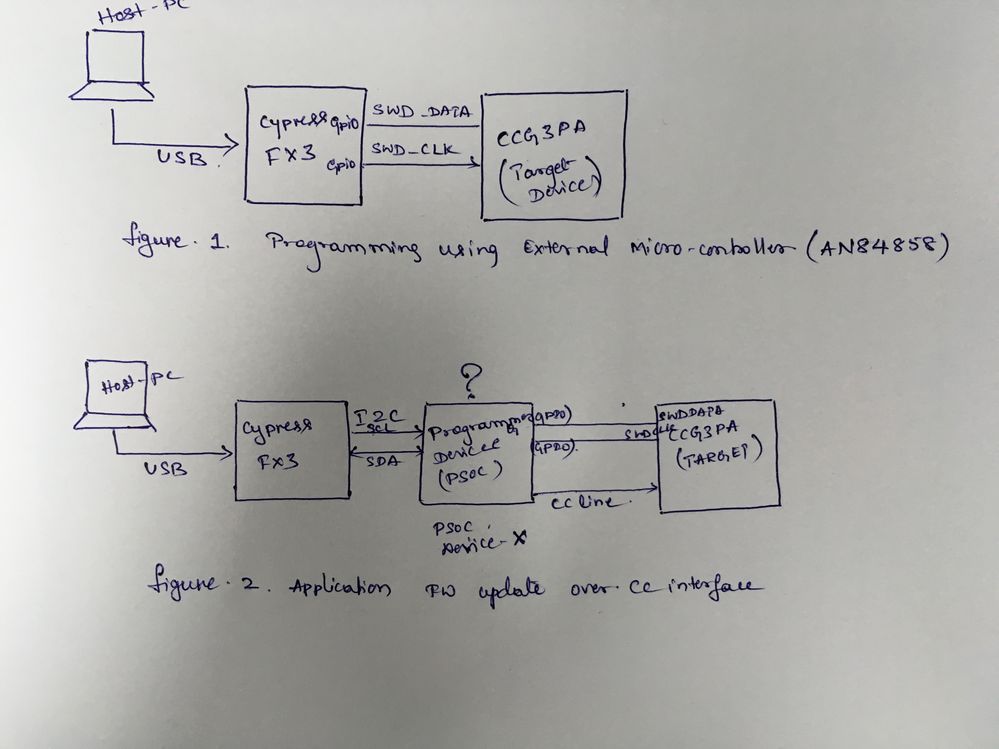 Host-PC
Cypress GPIO
FX3 GPIO
SWD_DATA
SWD_CLK
CCG3PA
(Target
Device)
USB
figure. 1. Programming using External Micro-controller (AN84858)
Host-PC
USB
Cypress
FX3
I2C
SCL
SDA
?
Programming
Device
(PSOC)
GPIO)
(GPIO).
SWDDATA
SWDCLK
CCG3PA
(TARGET)
CC line.
PSOC
Device-X
figure. 2. Application FW update over CC interface